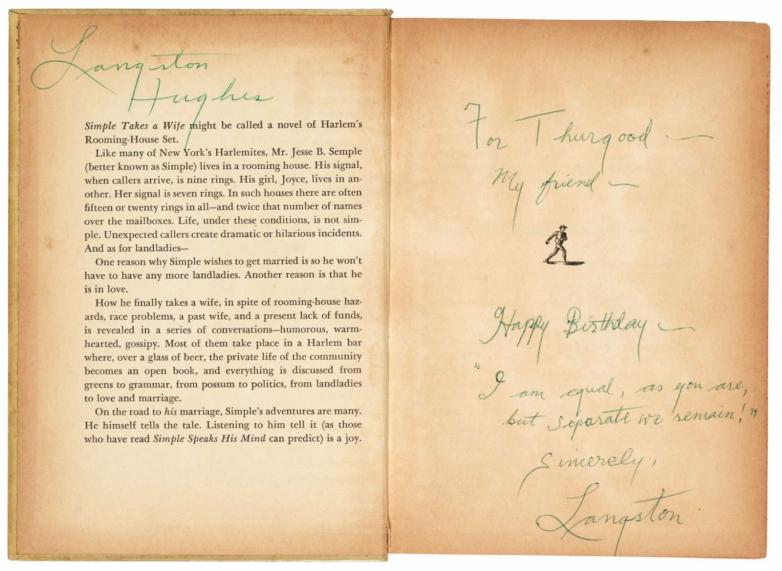 Langston
Hughes
Simple Takes a Wife might be called a novel of Harlem's
Rooming-House Set.
Like many of New York's Harlemites, Mr. Jesse B. Semple
(better known as Simple) lives in a rooming house. His signal,
when callers arrive, is nine rings. His girl, Joyce, lives in an-
other. Her signal is seven rings. In such houses there are often
fifteen or twenty rings in all—and twice that number of names
over the mailboxes. Life, under these conditions, is not sim-
ple. Unexpected callers create dramatic or hilarious incidents.
And as for landladies—
One reason why Simple wishes to get married is so he won't
have to have any more landladies. Another reason is that he
is in love.
How he finally takes a wife, in spite of rooming-house haz-
ards, race problems, a past wife, and a present lack of funds,
is revealed in a series of conversations—humorous, warm-
hearted, gossipy. Most of them take place in a Harlem bar
where, over a glass of beer, the private life of the community
becomes an open book, and everything is discussed from
greens to grammar, from possum to politics, from landladies
to love and marriage.
On the road to his marriage, Simple's adventures are many.
He himself tells the tale. Listening to him tell it (as those
who have read Simple Speaks His Mind can predict) is a joy.
For Thurgood —
My friend —
Happy Birthday —
"I am equal, as you are,
but separate we remain!"
Sincerely,
Langston